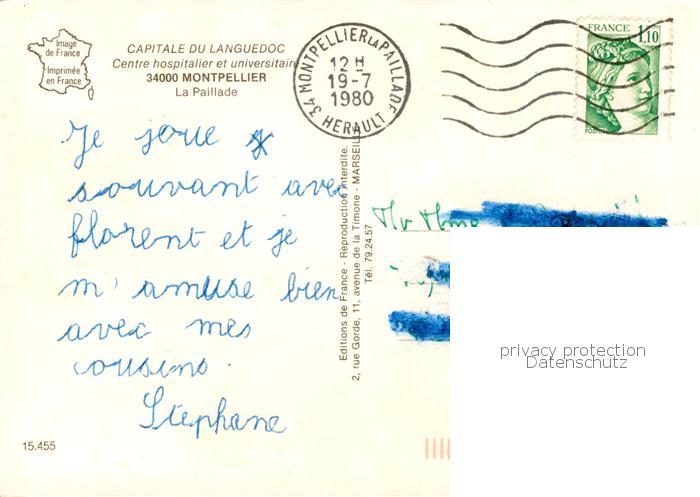 Image
de France
Imprimée
en France
CAPITALE DU LANGUEDOC
Centre hospitalier et universitaire
34000 MONTPELLIER
La Paillade
34 MONTPELLIER LA PAILLADE
12 H
19-7
1980
HERAULT
FRANCE
1,10
POSTES
Je joue
souvant avec
florent et je
m'amuse bien
avec mes
cousins.
Stéphane
Editions de France - Reproduction interdite.
2, rue Gorde, 11, avenue de la Timone - MARSEILLE
Tél. 79.24.57
privacy protection
Datenschutz
15.455